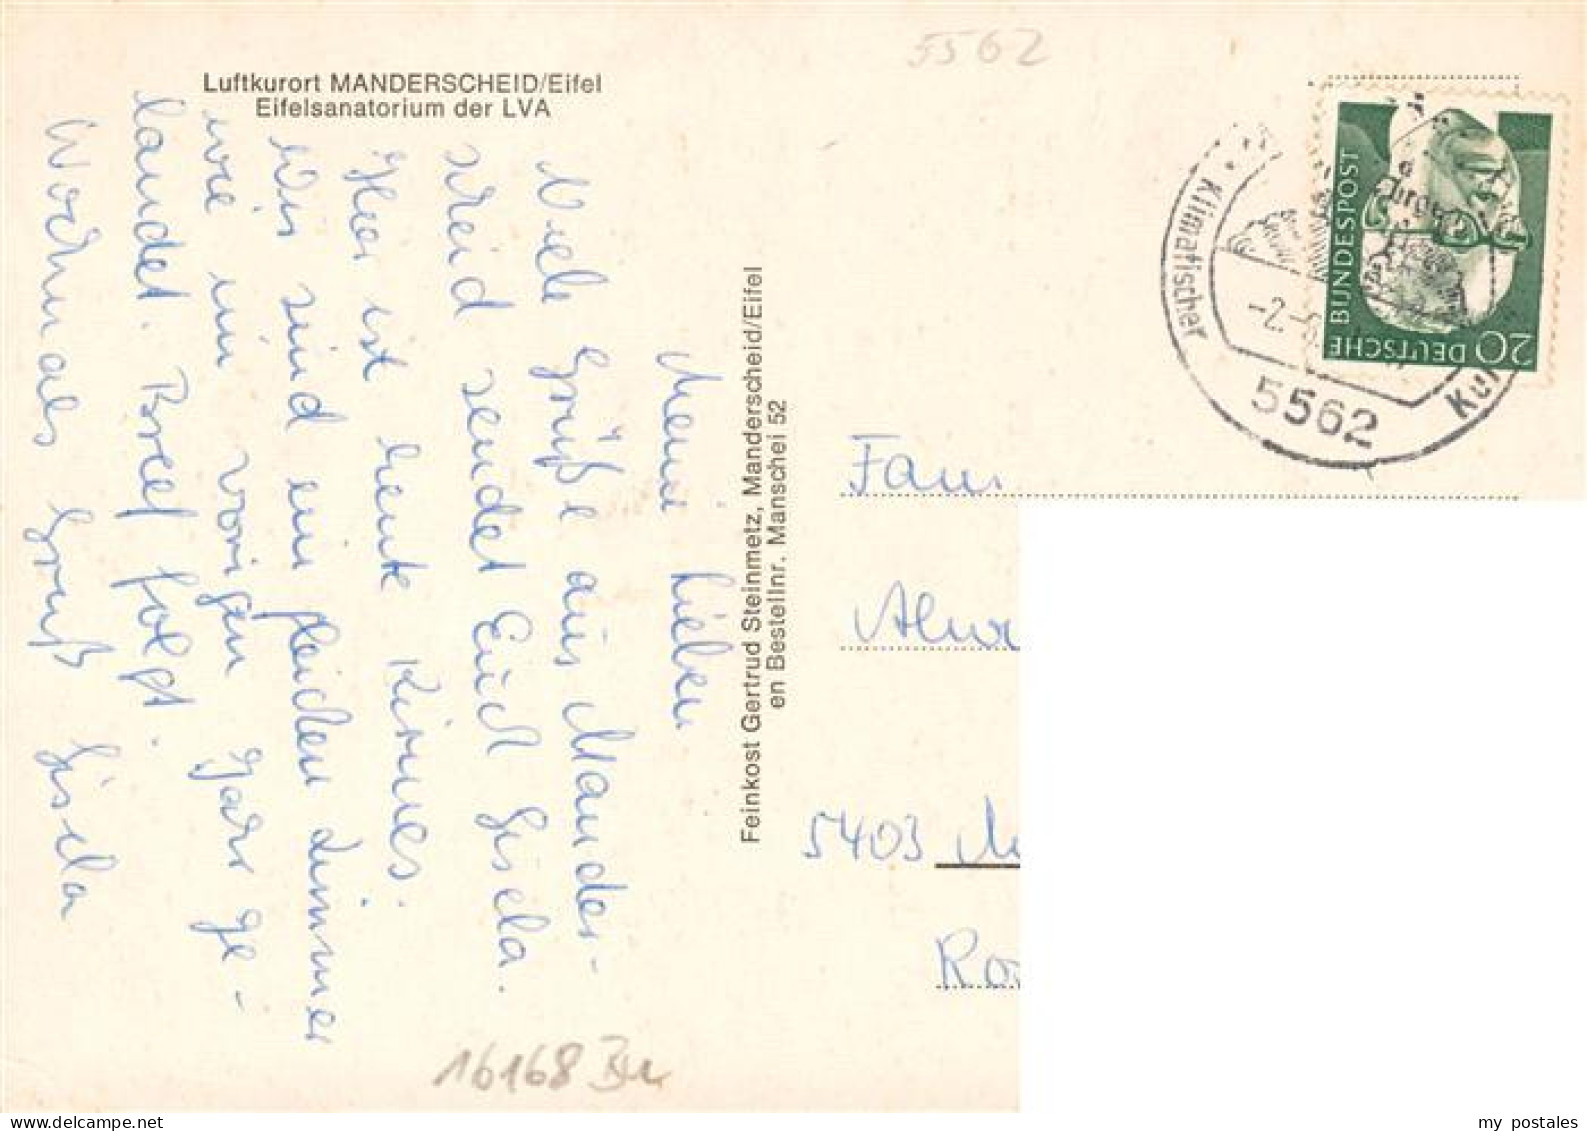 5562
Luftkurort MANDERSCHEID/Eifel
Eifelsanatorium der LVA
Meine Lieben
Viele Grüße aus Mander-
scheid sendet Euch Gisela.
Hier ist heute Kirmes.
Wir sind im gleichen Zimmer
wie im vorigen Jahr ge-
landet. Brief folgt.
Nochmals Gruß Gisela
Feinkost Gertrud Steinmetz, Manderscheid/Eifel
en Bestellnr. Manschei 52
Klimatischer Kur
-2.-
5562
DEUTSCHE BUNDESPOST
20
Fam.
5403
16168
my postales